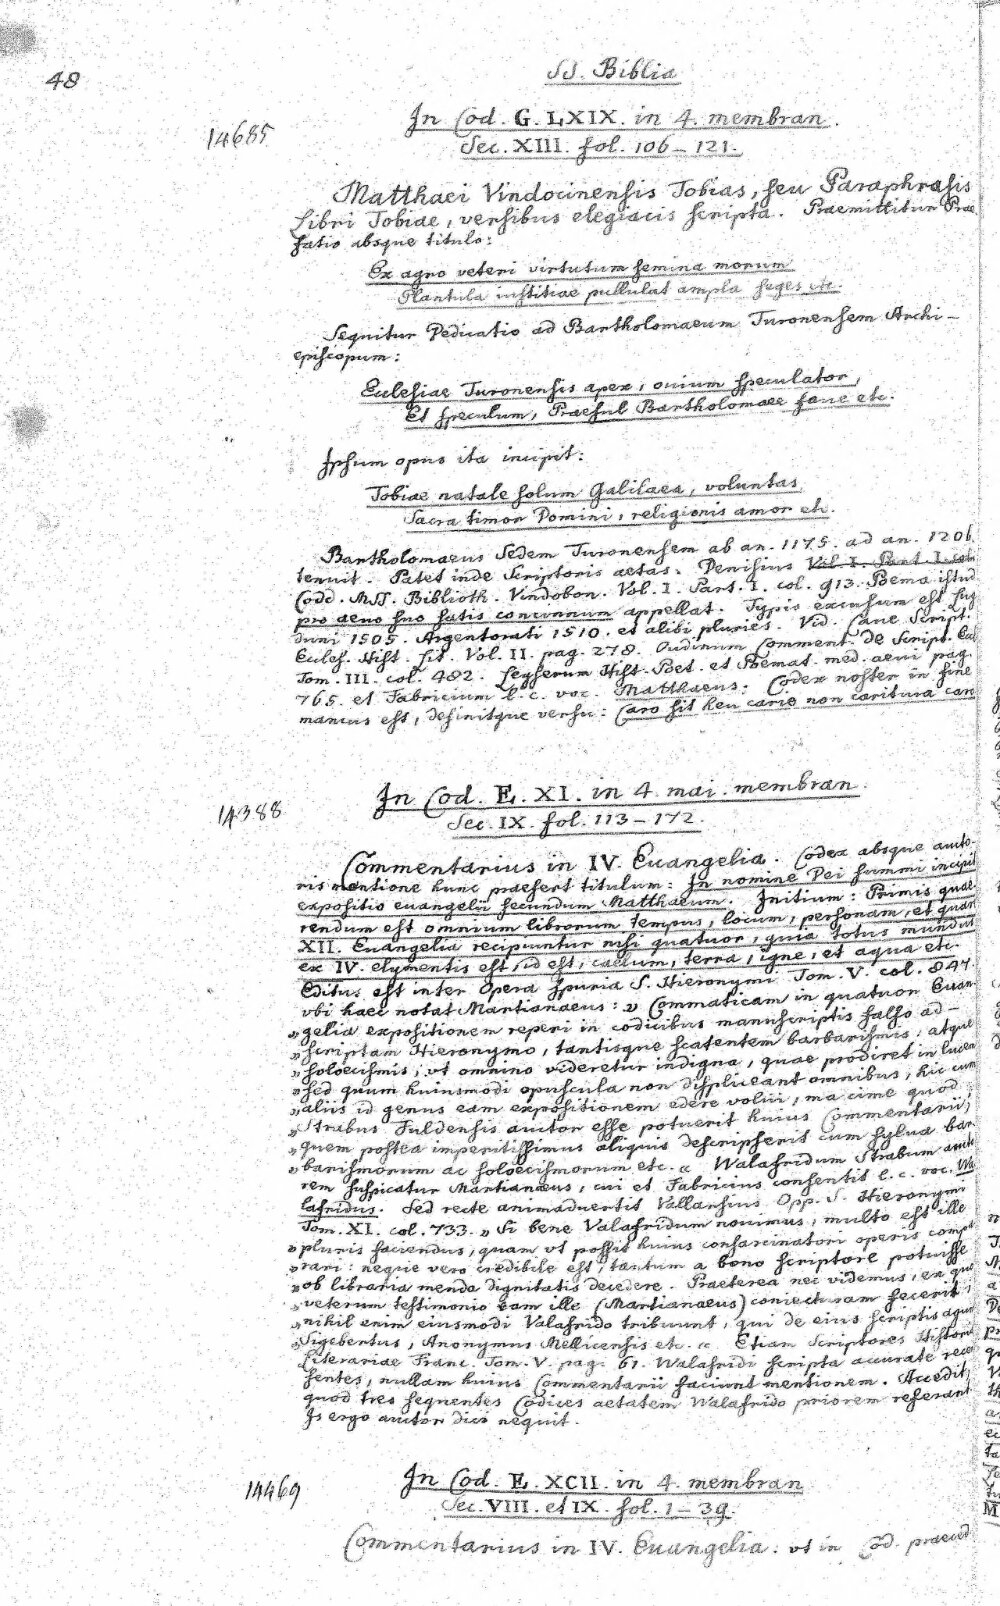 48
SS. Biblia
14685
In Cod. G. LXIX. in 4. membran.
Sec. XIII. fol. 106 – 121.
Matthaei Vindocinensis Tobias, seu Paraphrasis
Libri Tobiae, versibus elegiacis scripta. Praemittitur Prae
fatio absque titulo:
Ex agro veteri virtutum semina morum
Plantula iustitiae pullulat ampla seges etc.
Sequitur Dedicatio ad Bartholomaeum Turonensem Archi-
episcopum:
Ecclesiae Turonensis apex, ouium speculator,
Et speculum, Praesul Bartholomaee faue etc.
Ipsum opus ita incipit:
Tobiae natale solum Galilaea, voluntas
Sacra timor Domini, religionis amor etc.
Bartholomaeus Sedem Turonensem ab an. 1175. ad an. 1206.
tenuit. Patet inde Scriptoris aetas. Denisius Vol. I. Part. I. col
Codd. MSS. Biblioth. Vindobon. Vol. I. Part. I. col. 913. Poema istud
pro aeuo suo satis concinnum appellat. Typis excusum est Lug
duni 1505. Argentorati 1510. et alibi pluries. Vid. Caue Script.
Eccles. Hist. Lit. Vol. II. pag. 278. Oudinum Comment. de Script. Ecc
Tom. III. col. 482. Leyserum Hist. Poet. et Poemat. med. aeui pag.
765. et Fabricium l. c. voc. Matthaeus: Codex noster in fine
mancus est, desinitque versu: Caro sit heu carie non caritura caro
14388
In Cod. E. XI. in 4. mai. membran.
Sec. IX. fol. 113 – 172.
Commentarius in IV. Euangelia. Codex absque aucto-
ris mentione hunc praefert titulum: In nomine Dei summi incipit
expositio euangelii secundum Matthaeum. Initium: Primis quae
rendum est omnium librorum tempus, locum, personam, et quare
XII. Euangelia recipiuntur nisi quatuor, quia totus mundus
ex IV. elymentis est, id est, caelum, terra, igne, et aqua etc.
Editus est inter Opera spuria S. Hieronymi Tom. V. col. 847.
vbi haec notat Martianaeus: „ Commaticam in quatuor Euan
„ gelia expositionem reperi in codicibus manuscriptis falso ad-
„ scriptam Hieronymo, tantisque scatentem barbarismis, atque
„ soloecismis, vt omnino videretur indigna, quae prodiret in lucem
„ sed quum huiusmodi opuscula non displiceant omnibus, hic cum
„ aliis id genus eam expositionem edere volui, maxime quod
„ Strabus Fuldensis auctor esse potuerit huius Commentarii,
„ quem postea imperitissimus aliquis descripserit cum sylua bar
„ barismorum ac soloecismorum etc. “ Walafridum Strabum aucto
rem suspicatur Martianaeus, cui et Fabricius consentit l. c. voc. Wa
lafridus. Sed recte animaduertit Vallarsius Opp. S. Hieronymi
Tom. XI. col. 733. „ Si bene Valafridum nouimus, multo est ille
„ pluris faciendus, quam vt possit huius consarcinatori operis compa
„ rari: neque vero credibile est, tantum a bono scriptore potuisse
„ ob libraria menda dignitatis decedere. Praeterea nec videmus, ex quo
„ veterum testimonio eam ille (Martianaeus) coniecturam fecerit,
„ nihil enim eiusmodi Valafrido tribuunt, qui de eius scriptis agunt
„ Sigebertus, Anonymus Mellicensis etc. “ Etiam Scriptores Historiae
Literariae Franc. Tom. V. pag. 61. Walafridi scripta accurate recen
sentes, nullam huius Commentarii faciunt mentionem. Accedit,
quod tres sequentes Codices aetatem Walafrido priorem referant
Is ergo auctor dici nequit.
14469
In Cod. E. XCII. in 4. membran
Sec. VIII. et IX. fol. 1 – 39.
Commentarius in IV. Euangelia. vt in Cod. praeced